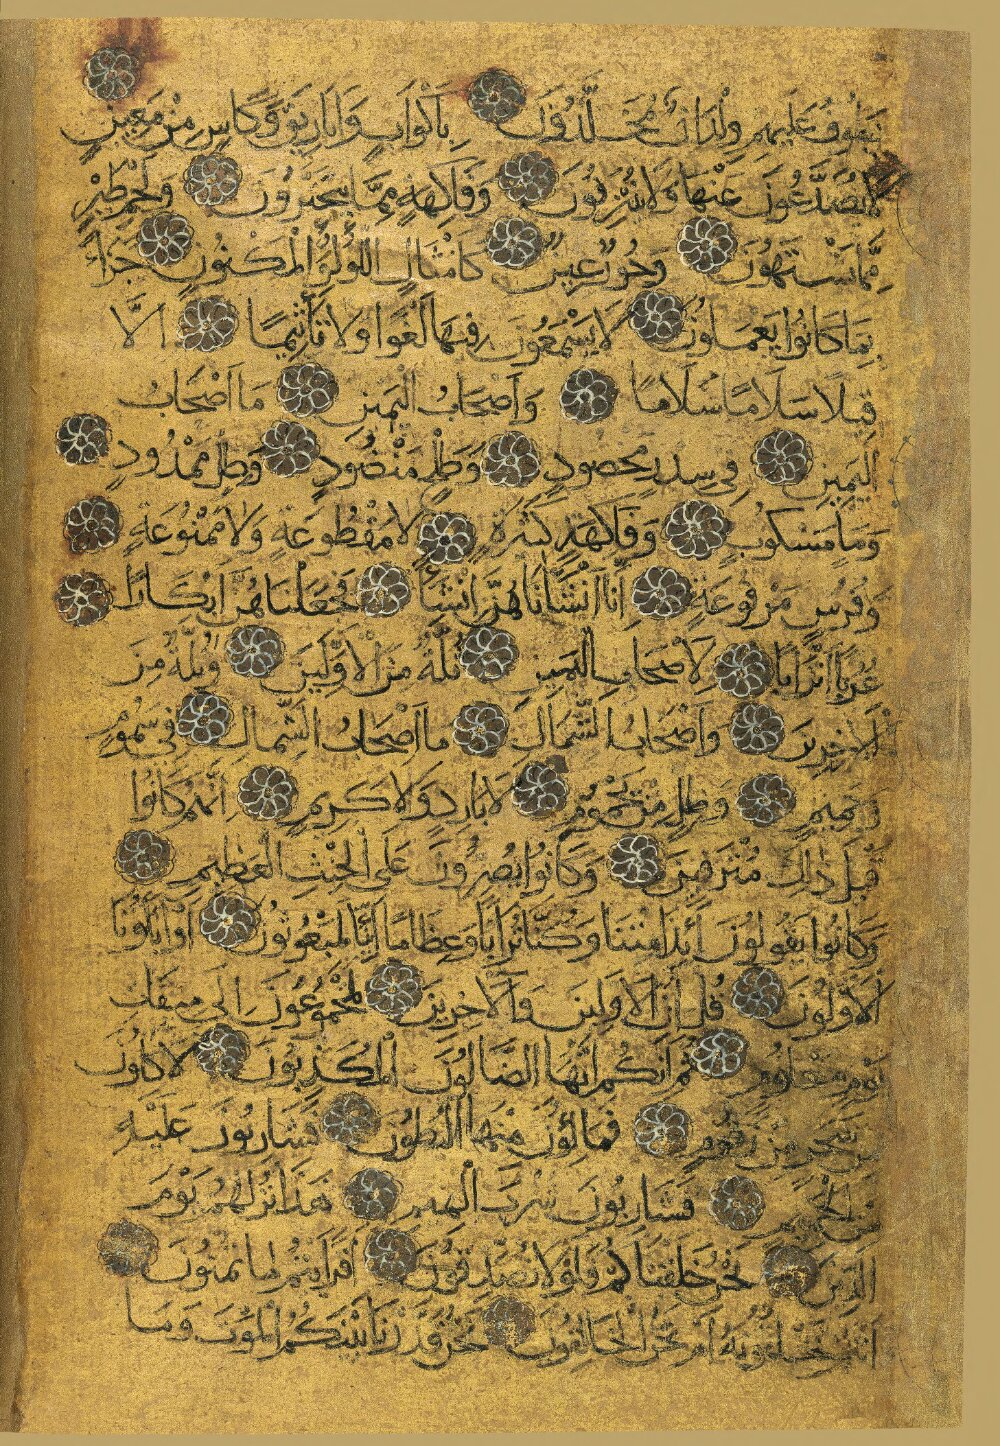 يطوف عليهم ولدان مخلدون بأكواب وأباريق وكأس من معين
لا يصدعون عنها ولا ينزفون وفاكهة مما يتخيرون ولحم طير
مما يشتهون وحور عين كأمثال اللؤلؤ المكنون جزاء
بما كانوا يعملون لا يسمعون فيها لغوا ولا تأثيما إلا
قيلا سلاما سلاما وأصحاب اليمين ما أصحاب
اليمين في سدر مخضود وطلح منضود وظل ممدود
وماء مسكوب وفاكهة كثيرة لا مقطوعة ولا ممنوعة
وفرش مرفوعة إنا أنشأناهن إنشاء فجعلناهن أبكارا
عربا أترابا لأصحاب اليمين ثلة من الأولين وثلة من
الآخرين وأصحاب الشمال ما أصحاب الشمال في سموم
وحميم وظل من يحموم لا بارد ولا كريم إنهم كانوا
قبل ذلك مترفين وكانوا يصرون على الحنث العظيم
وكانوا يقولون أئذا متنا وكنا ترابا وعظاما أئنا لمبعوثون أو آباؤنا
الأولون قل إن الأولين والآخرين لمجموعون إلى ميقات
يوم معلوم ثم إنكم أيها الضالون المكذبون لآكلون
من شجر من زقوم فمالئون منها البطون فشاربون عليه
من الحميم فشاربون شرب الهيم هذا نزلهم يوم
الدين نحن خلقناكم فلولا تصدقون أفرأيتم ما تمنون
أأنتم تخلقونه أم نحن الخالقون نحن قدرنا بينكم الموت وما